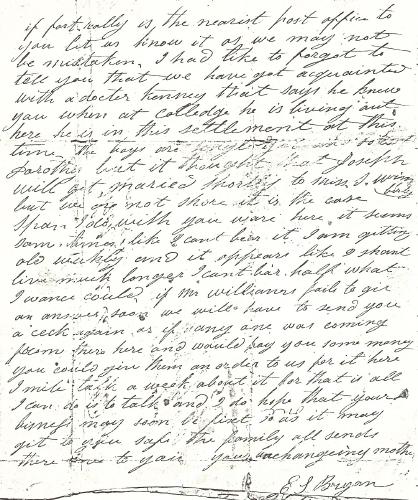 if fort vally is the nearest post office to
you let us know it as we may not
be mistaken. I had like to forgot to
tell you that we have got acquainted
with a docter Kenney that says he knew
you when at colledge he is living out
here he is in this settlement at this
time, the boys are
but it thought that Joseph
will get married shortly to miss I.
but we are not shore it is the case
I do wish you ware here it seems
som times like I cant bear it I am gitting
old wickly and it appears like I shant
live much longer I cant bar half what
I wance could, if Mr williams fails to giv
an answer soon we will have to send you
a ceck again or if any one was coming
from there here and would pay you some money
you could giv them an order to us for it here
I mite talk a week about it for that is all
I can do is to talk and I do hope that your
bisness may soon be fixt so as it may
get to you safe the family all sends
there love to you your unchangeing mothe
E S Bryan